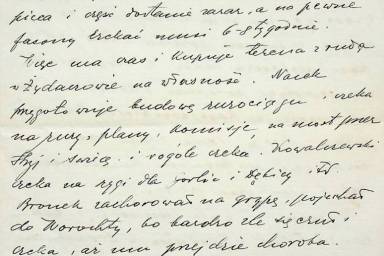 pieca i części dostanie zaraz, a na pewne
fasony czekać musi 6-8 tygodnie.
Więc ma czas i kupuje terena z rudą
w Żydaczowie na własność. Nacek
przygotowuje budowę rurociągu, czeka
na rury, plany, komisję, na most przez
Stryj i Świcę i wogóle czeka. Kowalczewski
czeka na rygi dla Gorlic i Dębicy itd.
Bronek zachorował na grypę, pojechał
do Worochty, bo bardzo źle się czuł i
czeka, aż mu przejdzie choroba.